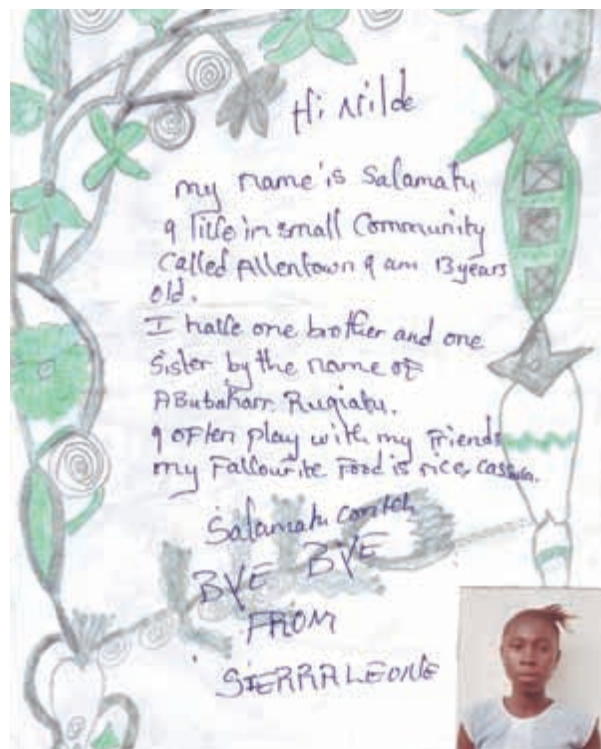 Hi Nilde
my name is Salamatu
I life in small Community
Called Allentown I am 13 years
old.
I halfe one brother and one
Sister by the name of
ABubakarr Rugiatu.
I often play with my Friends
my Fallourite Food is rice, cassava.
Salamatu conteh
BYE BYE
FROM
SIERRALEONE